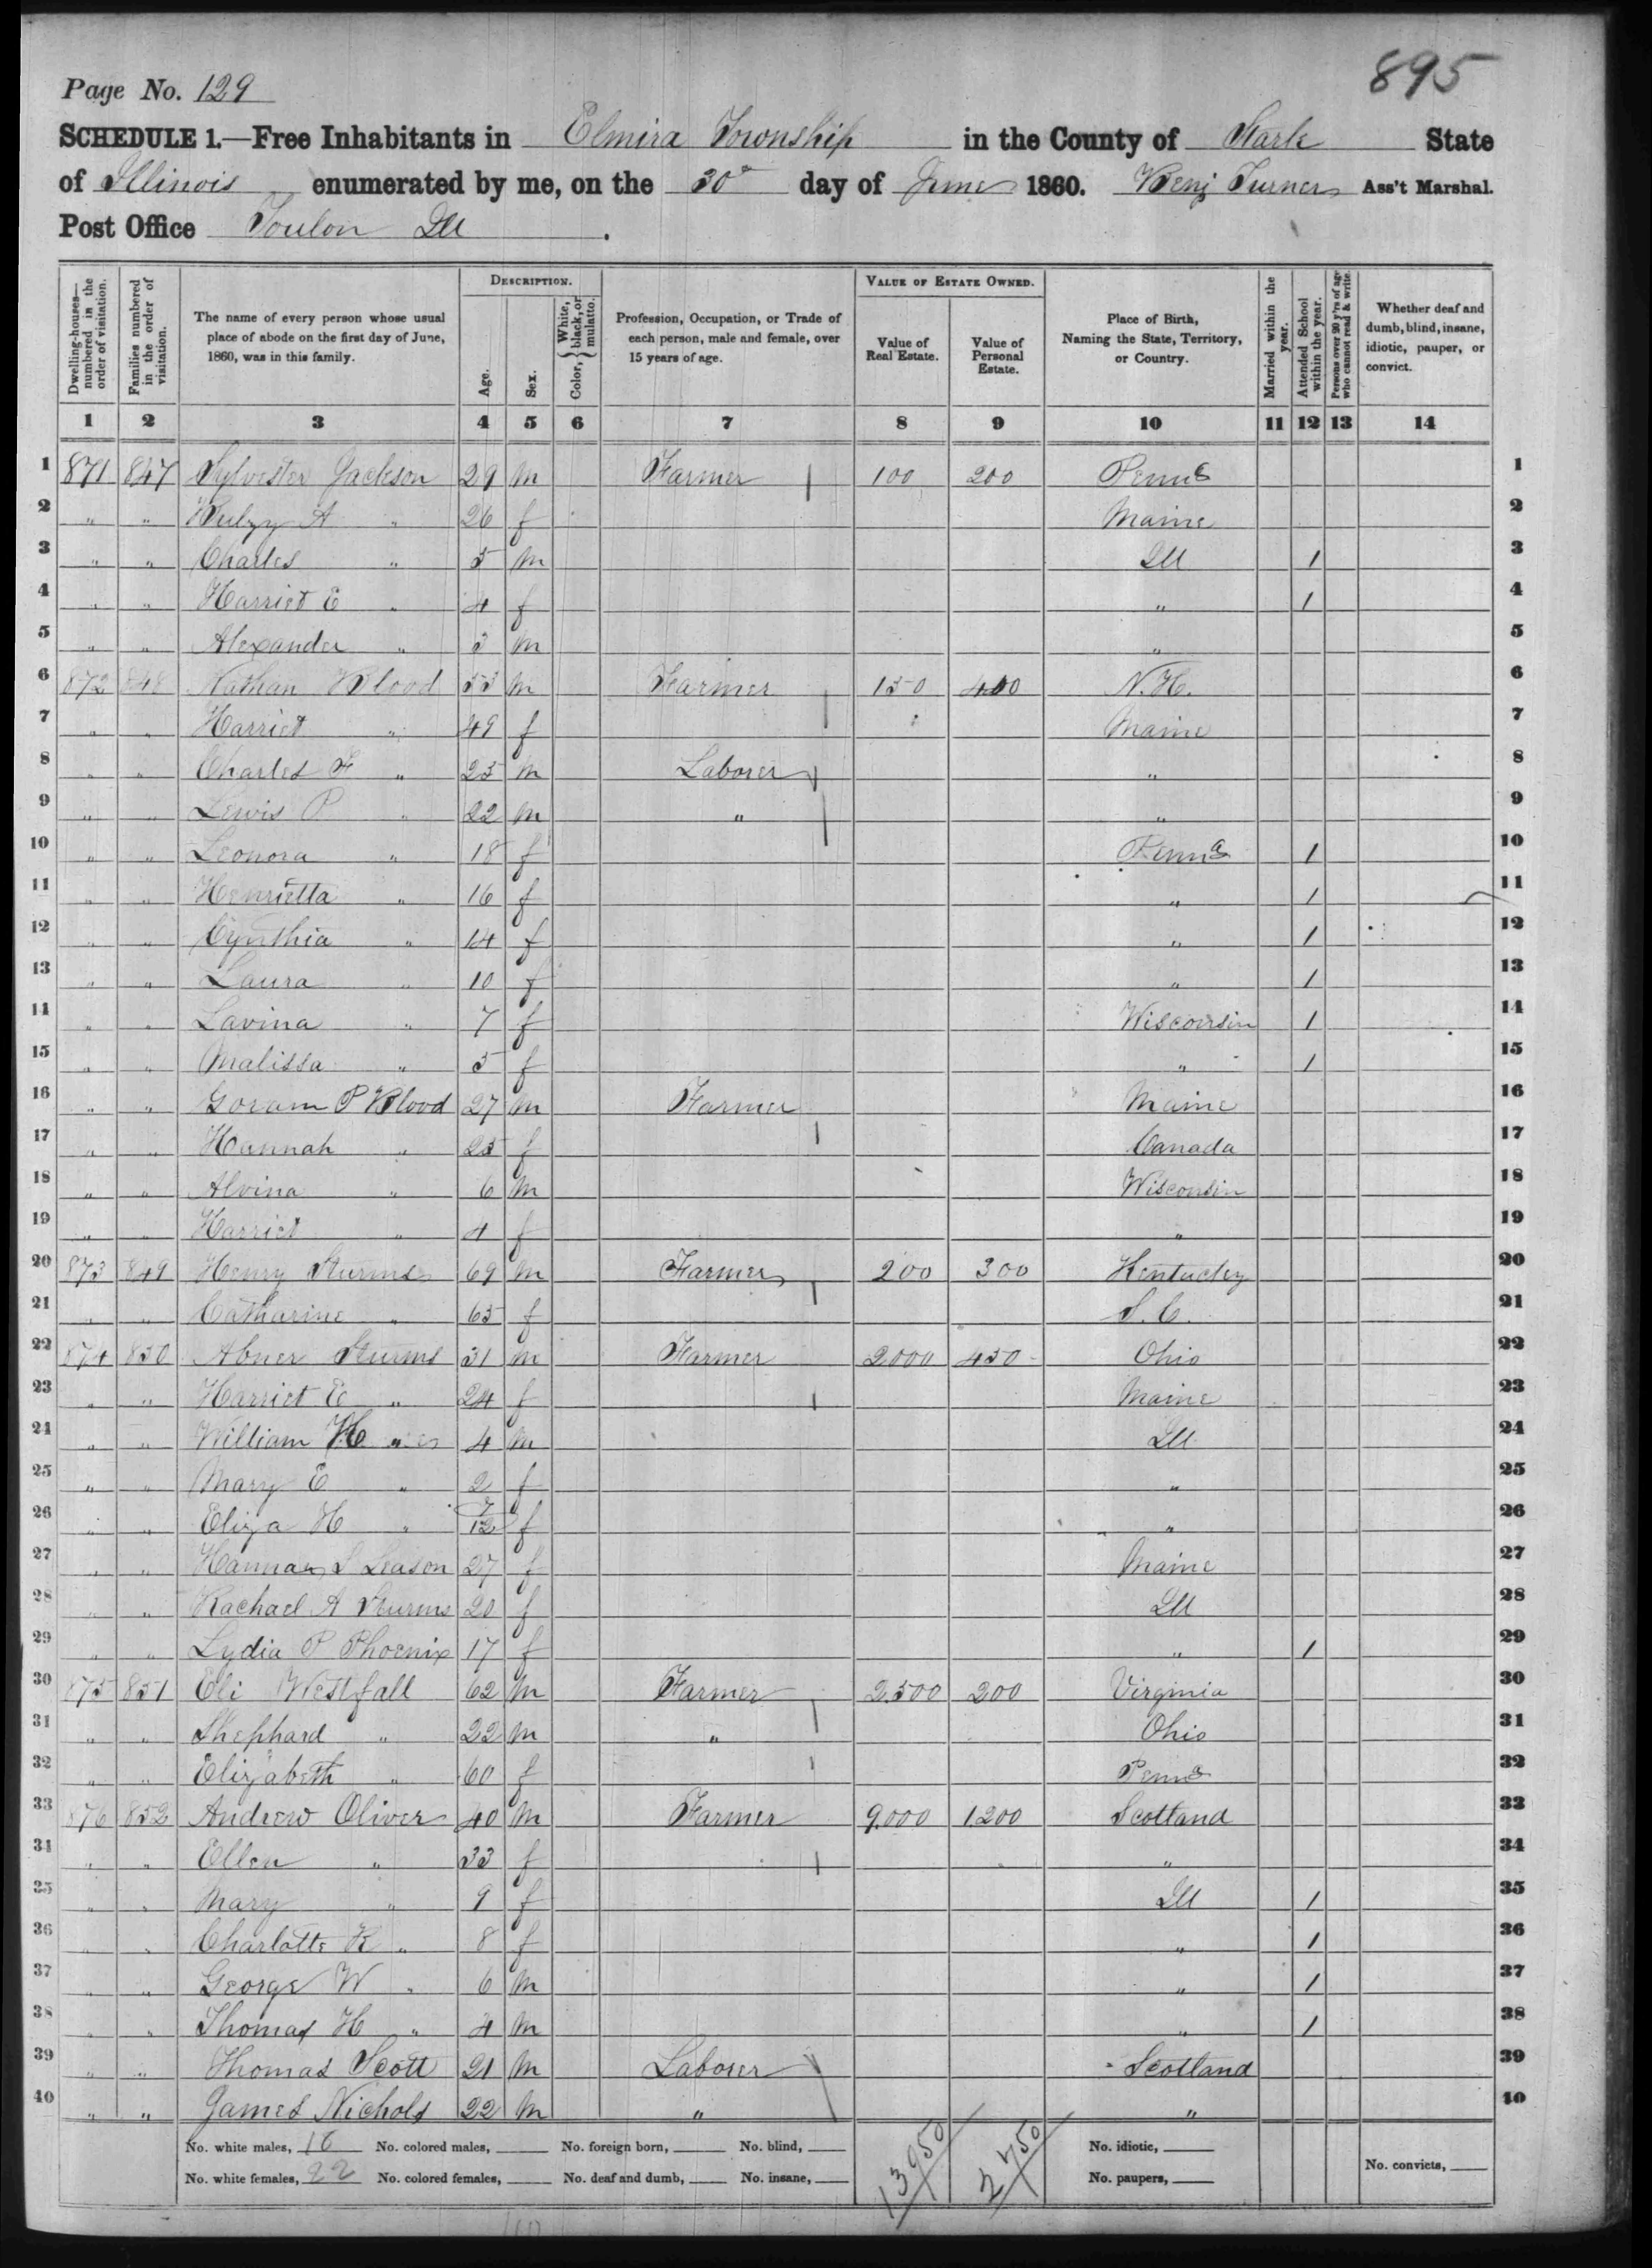 895
Page No. 129
SCHEDULE 1.—Free Inhabitants in Elmira Township in the County of Stark State
of Illinois enumerated by me, on the 30th day of June 1860. Benj Turner Ass't Marshal.
Post Office Toulon Ill.
DESCRIPTION. VALUE OF ESTATE OWNED.
Dwelling-houses—numbered in the order of visitation. Families numbered in the order of visitation. The name of every person whose usual place of abode on the first day of June, 1860, was in this family. Age. Sex. Color, { White, black, or mulatto. Profession, Occupation, or Trade of each person, male and female, over 15 years of age. Value of Real Estate. Value of Personal Estate. Place of Birth, Naming the State, Territory, or Country. Married within the year. Attended School within the year. Persons over 20 y'rs of age who cannot read & write. Whether deaf and dumb, blind, insane, idiotic, pauper, or convict.
1 2 3 4 5 6 7 8 9 10 11 12 13 14
1 871 847 Sylvester Jackson 29 m Farmer 100 200 Penna 1
2 " " A " 26 f Maine 2
3 " " Charles " 5 m Ill 1 3
4 " " Harriet E " 4 f " 1 4
5 " " Alexander " 3 m " 5
6 872 848 Nathan Blood 53 m Farmer 150 400 N.H. 6
7 " " Harriet " 49 f Maine 7
8 " " Charles F " 25 m Laborer " 8
9 " " Lewis P " 22 m " " 9
10 " " Leonora " 18 f Penna 1 10
11 " " Henrietta " 16 f " 1 11
12 " " Cynthia " 14 f " 1 12
13 " " Laura " 10 f " 1 13
14 " " Lavina " 7 f Wisconsin 1 14
15 " " Malissa " 5 f " 1 15
16 " " Goram P Blood 27 m Farmer Maine 16
17 " " Hannah " 25 f Canada 17
18 " " Alvina " 6 m Wisconsin 18
19 " " Harriet " 4 f " 19
20 873 849 Henry Sturms 69 m Farmer 200 300 Kentucky 20
21 " " Catharine " 65 f S.C. 21
22 874 850 Abner Sturms 31 m Farmer 2000 450 Ohio 22
23 " " Harriet E " 24 f Maine 23
24 " " William H " 4 m Ill 24
25 " " Mary E " 2 f " 25
26 " " Eliza H " 7/12 f " 26
27 " " Hannah L Leason 27 f Maine 27
28 " " Rachael A Sturms 20 f Ill 28
29 " " Lydia P Phoenix 17 f " 1 29
30 875 851 Eli Westfall 62 m Farmer 2,500 200 Virginia 30
31 " " Shephard " 22 m " Ohio 31
32 " " Elizabeth " 60 f Penna 32
33 876 852 Andrew Oliver 40 m Farmer 9,000 1200 Scotland 33
34 " " Ellen " 33 f " 34
35 " " Mary " 9 f Ill 1 35
36 " " Charlotte K " 8 f " 1 36
37 " " George W " 6 m " 1 37
38 " " Thomas H " 4 m " 1 38
39 " " Thomas Scott 21 m Laborer Scotland 39
40 " " James Nichols 22 m " " 40
No. white males, 18 No. colored males, No. foreign born, No. blind, 13950 2750 No. idiotic,
No. white females, 22 No. colored females, No. deaf and dumb, No. insane, No. paupers, No. convicts,